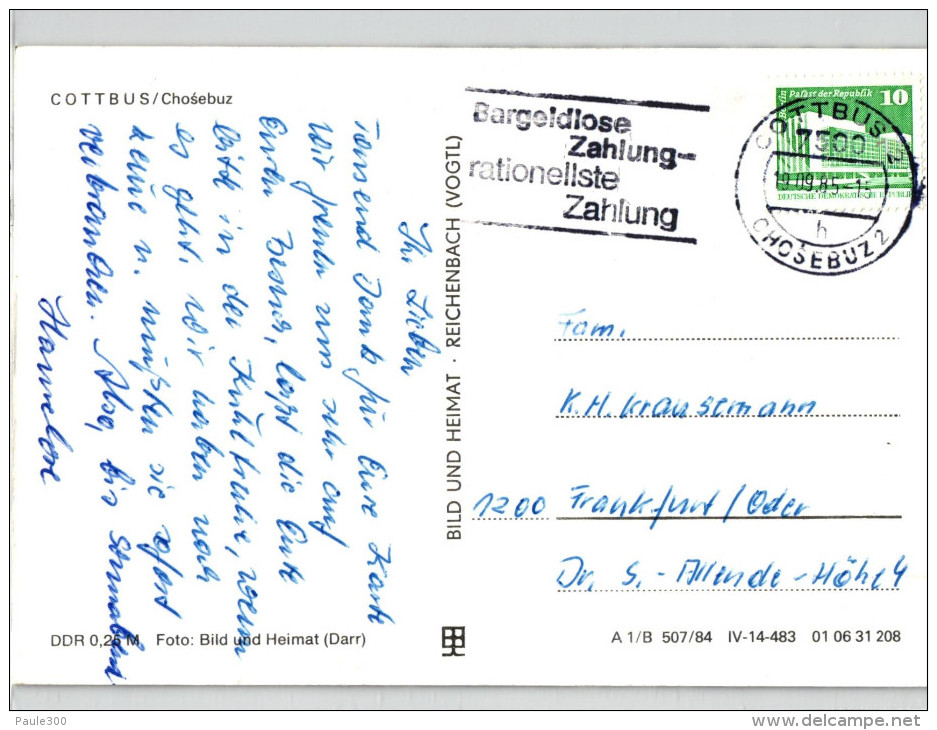 COTTBUS/Chośebuz
Ihr Lieben
Tausend Dank für Eure Karte
Wir freuen uns sehr auf
Euren Besuch, laßt die Ente
bitte in der Kühltruhe, wenn
es geht. Wir haben noch
keine u. müßten sie sofort
verbrauchen. Also, bis Sonnabend
Hannelore
DDR 0,25 M Foto: Bild und Heimat (Darr)
BILD UND HEIMAT · REICHENBACH (VOGTL)
Bargeldlose
Zahlung-
rationellste
Zahlung
COTTBUS 2
7500
19.09.85-15
h
CHOŚEBUZ 2
Berlin Palast der Republik 10
DEUTSCHE DEMOKRATISCHE REPUBLIK
Fam.
K.H. Kraustmann
1200 Frankfurt/Oder
Dr. S.-Allende-Höhe 4
A 1/B 507/84 IV-14-483 01 06 31 208
Paule300
www.delcampe.net